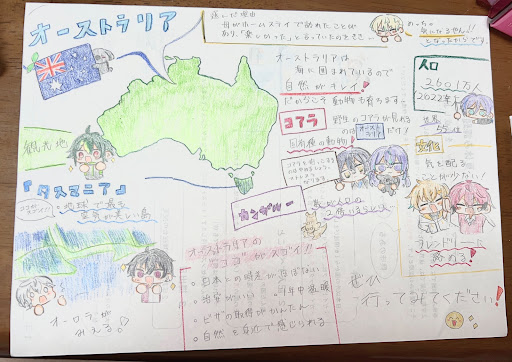 オーストラリア
選んだ理由
母がホームステイで訪れたことが
あり、「楽しかった」と言っていたのをきき…
めっちゃ
気になるやん!!
となったからです。
オーストラリアは
海に囲まれているので
自然がキレイ!
だからこそ動物も育ちます
コアラ
野生のコアラが見れる
のは
オースト
ラリア
だけ!
固有種の動物!
人口
2601万人
(2022年)
世界
55位
文化
気を配る
ことが少ない!
フレンドリー
観光地
「タスマニア」
地球で最も
空気が美しい島
オーロラが
みえる!
カンガルー
オーストラリアの
ココがスゴイ!!
・日本との時差がほぼない
・治安がいい
・年中温暖
・ビザの取得がかんたん
・自然を身近で感じられる
ぜひ
行ってみてください!